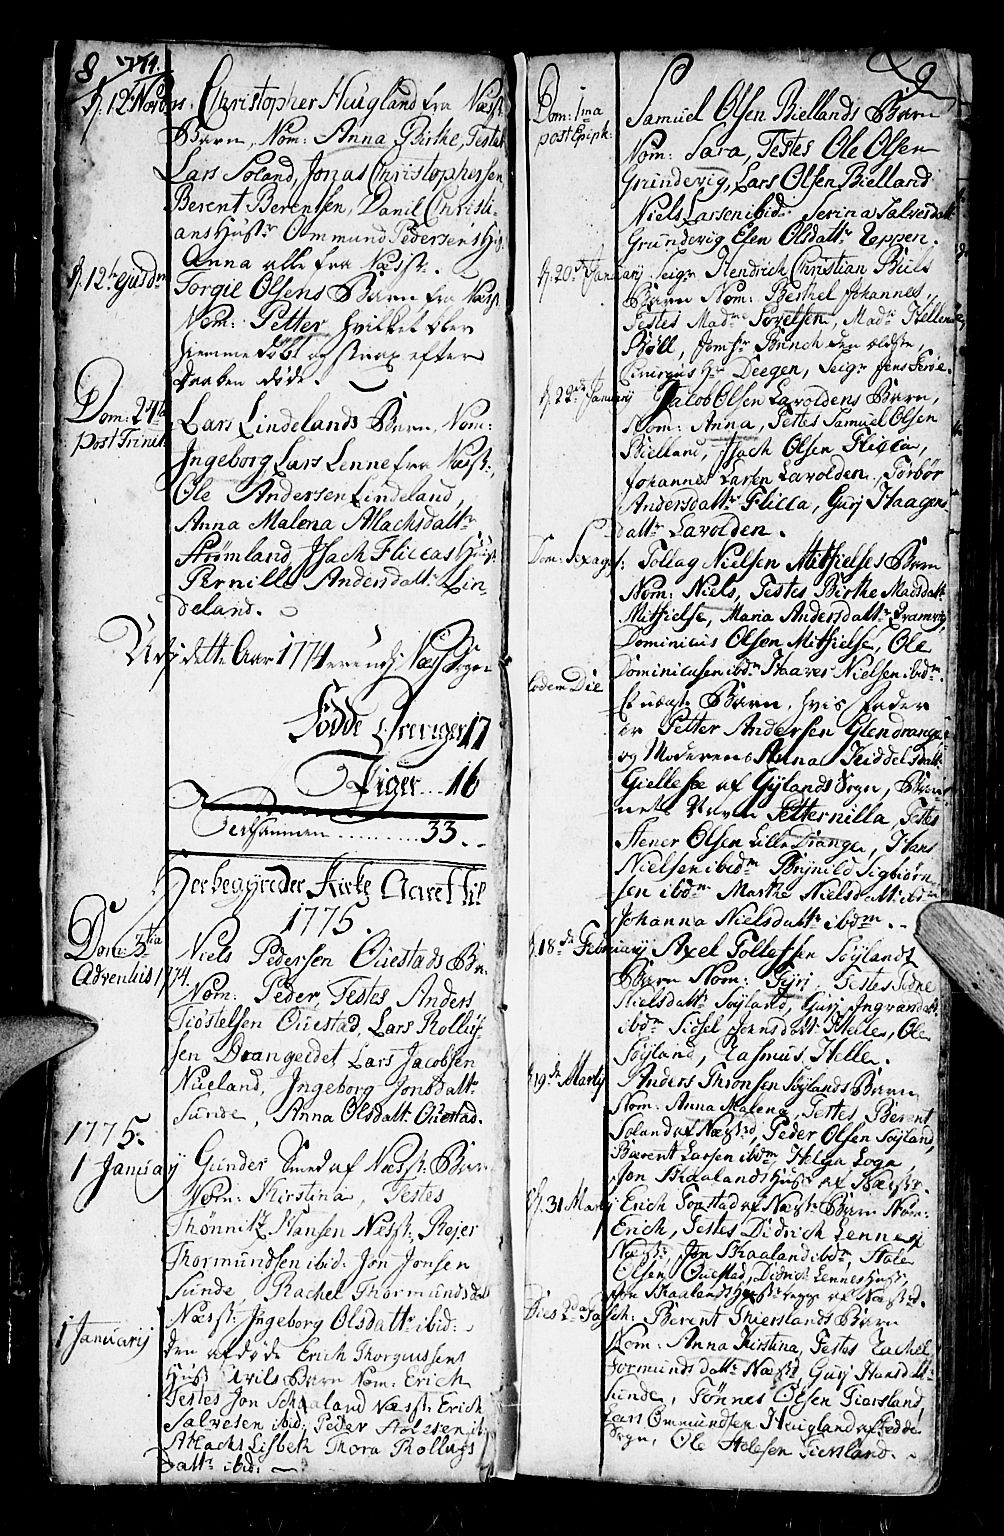 8 1774.
d. 12 Novbrs. Christopher Haugland fra Næst:
Barn, Nom: Anna Birthe, Testes
Lars Soland, Jonas Christophersen
Berent Berentsen, Danil Christi-
ans Hustr Ommund Pedersens Hustr
Anna alle fra Næsst.
d. 12te ejusdm Torgil Olsens Barn fra Næss
Nom: Petter, hvilket blev
hiemmedøbt og strax efter
Daaben døde.
Dom: 24ta post Trinit. Lars Lindelands Barn, Nom:
Ingeborg, Lars Lenne fra Næst:
Ole Andersen Lindeland,
Anna Malena Atlachsdattr
Strømland, Isach Fliccas Hustr
Pernille Andersdatt: Lin
deland.
Udj dette Aar 1774 ere udj Næs Sogn
Fødde Drenger 17
Piger ... 16
Tilsammen ......... 33 ..
Her begynder Kirke Aaret til
1775.
Dom: 3tia Adventus 1774. Niels Pedersen Ouestads Bn.
Nom: Peder, Testes Anders
Tiøstelsen Ouestad, Lars Rolluf
sen Drangeidet, Lars Jacobsen
Nueland, Ingeborg Jonsdattr
Sunde, Anna Olsdatt: Ouestad.
1775.
1 Januarj Gunder Smed af Næsst: Barn
Nom: Kirstina, Testes
Thønnitz Hansen Næsst: Rejer
Thormundsen ibid: Jon Jonsen
Sunde, Rachel Thormundsdatt
Næsst: Ingeborg Olsdattr ibid:
1 Januarij Den afdøde Erich Thorgiussens
Hust: Avils Barn Nom: Erich
Testes Jon Schaaland Næsst: Erich
Salvesen ibid: Peder Atolesen ib
Atlachs Lisbeth Thora Thollufs
dattr ibid:
9
Dom: 1ma post Epiph. Samuel Olsen Biellands Barn
Nom: Sara, Testes Ole Olsen
Grundevig, Lars Olsen Bielland
Niels Larsen ibid: Serina Salvesdatt
Grundevig Elen Olsdattr Eppen.
d. 20de Januarij Seigr Hendrich Christian Biels
Barn Nom: Berthel Johannes,
Testes Madme Sørelsen, Madm Hellene
Bøll, Jomfr Bunch den ældste,
Chirurgus Hr Deegen, Seigr Jens Feroe.
d. 22de Januarij Jacob Olsen Lavoldens Barn,
Nom: Anna, Testes Samuel Olsen
Bielland, Isach Olsen Flicca,
Johannes Larsen Lavolden, Torbør
Andersdattr Flicca, Gurj Haagens
dattr Lavolden.
Dom: Sexages: Tollag Nielsen Mitsielses Barn
Nom: Niels, Testes Birthe Madsdatt
Mitsielse, Maria Andersdattr Qvamvig,
Dominicus Olsen Mitsielse, Ole
Dominicusen ibdm Haaver Nielsen ibidm
Eodem Die Et uægte Barn, hvis Fader
er Petter Andersen Glendrange
og Moderen Anna Kiddelsdatt
Giellesse af Gylands Sogn, Bar
nets Navn Petternilla, Testes
Stener Olsen Lille Drange, Hans
Nielsen ibidm Brynild Sigbiørn
sen ibdm Marthe Nielsdatt ibdm
Johanna Nielsdattr ibdm ..
d. 18de Februarij Axel Tollefsen Søylands
Barn Nom: Siri, Testes Sidne
Nielsdattr Søyland, Gurj Ingvarsdatt
ibdm Sidsel Jensdatt: Helle, Ole
Søyland, Rasmus Helle.
d 19de Martij Anders Thronsen Søylands Barn
Nom: Anna Malena, Testes Berent
Soland af Næstd, Peder Olsen Søyland,
Bærent Larsen ibdm, Helga Loga,
Jon Skaalands Hustr af Næstr.
d. 31 Martij Erich Toxstad af Næstr Barn Nom:
Erich, Testes Didrich Lennes
Næstr, Jon Skaaland ibdm, Atale
Olsen Ouestad, Didrich Lennes Hustr,
Jon Skaalands Hustr begge af Næstd.
Dies 2da Pasch: Berent Thierslands Barn
Nom: Anna Kirstina, Testes Rachel
Tormundsdattr Næstd, Gurj Hansdatt
Sunde, Tønnes Olsen Tiorsland,
Lars Ommundsen Haugland af Fedde
Sogn, Ole Atelesen Tiersland.